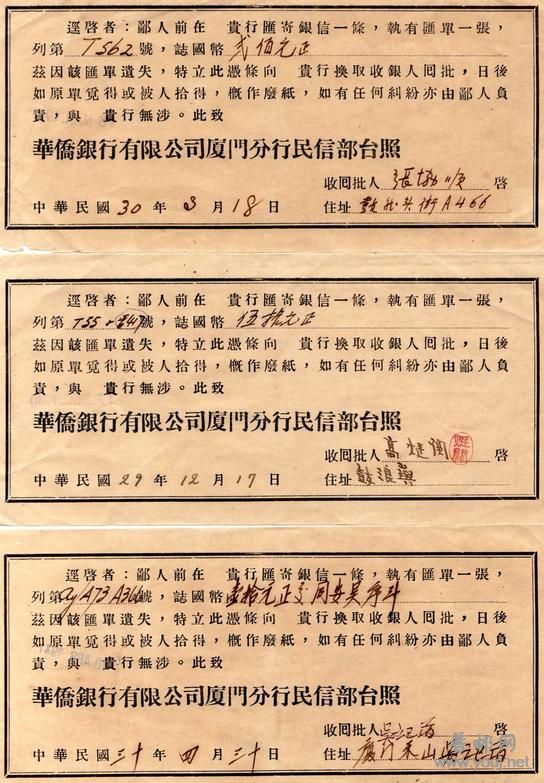 逕啓者：鄙人前在　貴行匯寄銀信一條，執有匯單一張，
列第 T562 號，誌國幣 貳佰元正
茲因該匯單遺失，特立此憑條向　貴行換取收銀人囘批，日後
如原單覓得或被人拾得，槪作廢紙，如有任何糾紛亦由鄙人負
責，與　貴行無涉。此致
華僑銀行有限公司厦門分行民信部台照
收囘批人 張 順 啓
中華民國 30 年 3 月 18 日　住址 鼓 头街 A466
逕啓者：鄙人前在　貴行匯寄銀信一條，執有匯單一張，
列第 T55 號，誌國幣 伍拾元正
茲因該匯單遺失，特立此憑條向　貴行換取收銀人囘批，日後
如原單覓得或被人拾得，槪作廢紙，如有任何糾紛亦由鄙人負
責，與　貴行無涉。此致
華僑銀行有限公司厦門分行民信部台照
收囘批人 高 啓
中華民國 29 年 12 月 17 日　住址 鼓浪嶼
逕啓者：鄙人前在　貴行匯寄銀信一條，執有匯單一張，
列第 A73 A366 號，誌國幣 壹拾元正交同安吳序斗
茲因該匯單遺失，特立此憑條向　貴行換取收銀人囘批，日後
如原單覓得或被人拾得，槪作廢紙，如有任何糾紛亦由鄙人負
責，與　貴行無涉。此致
華僑銀行有限公司厦門分行民信部台照
收囘批人 吳 啓
中華民國 三十 年 四 月 三十 日　住址 厦門 山吳